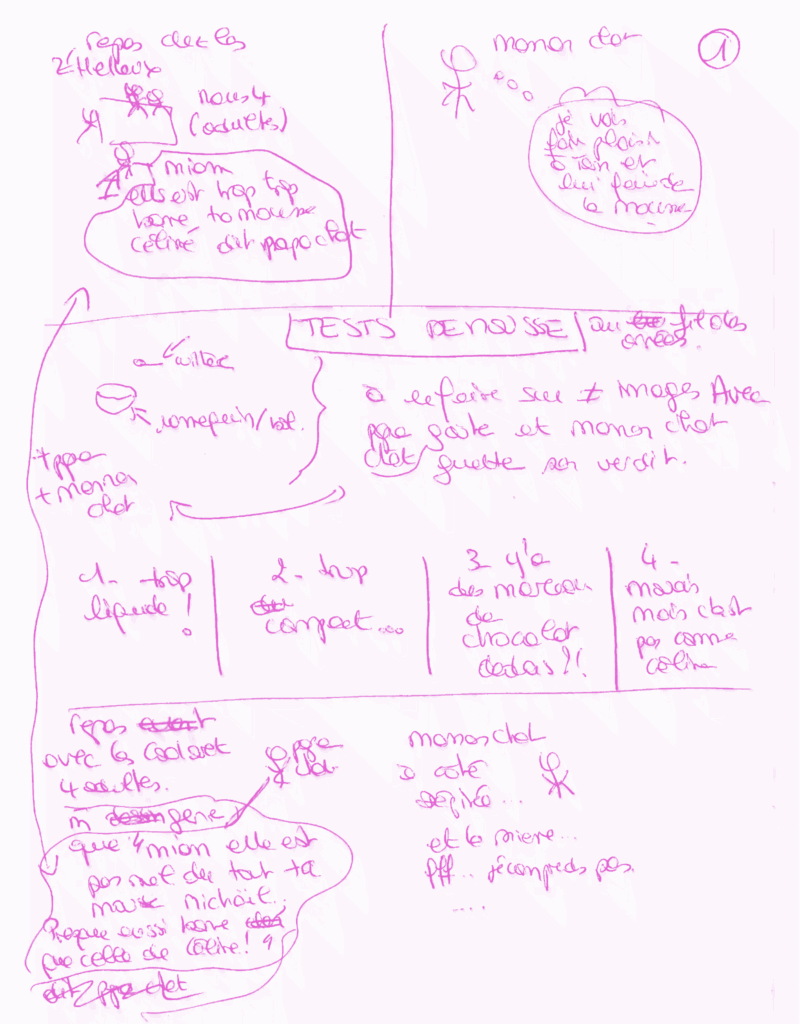 repas chez les
nous 4
(adultes)
miam
elle est trop trop
bonne ta mousse
céline dit papa chat
maman chat
1
je vais
faire plaisir
à Tom et
lui faire de
la mousse
TESTS DE MOUSSE au fil des
années.
cuillère
à refaire sur ≠ images Avec
papa goûte et maman chat
chat guette son verdict.
+ papa
+ maman
chat
1- trop
liquide !
2- trop
compact...
3 y'a
des morceaux
de
chocolat
dedans ?!
4 -
mais c'est
pas comme
céline
repas
avec les
4 adultes.
papa
chat
m gene
que 4
miam elle est
pas mal du tout ta
Presque aussi bonne
que celle de Céline !
dit papa chat
maman chat
à coté
dépitée...
et la mienne...
Pff... j'comprends pas.
....